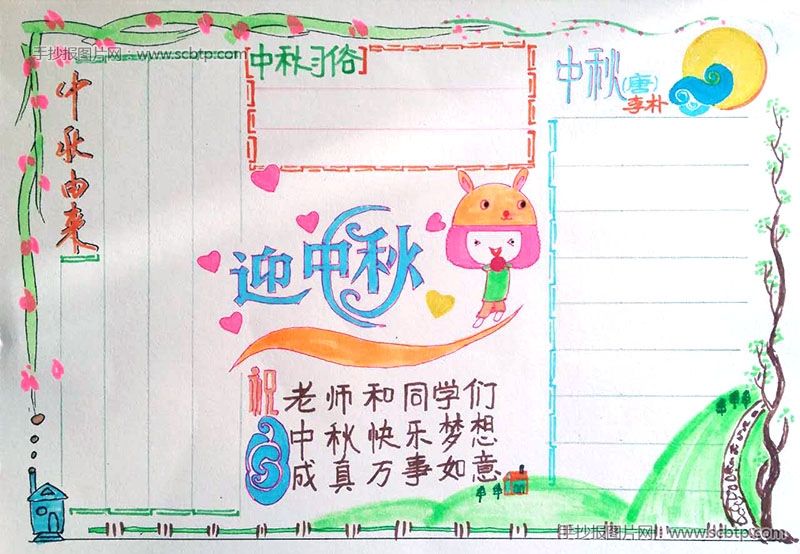 手抄报图片网：www.scbtp.com
中秋由来
中秋习俗
中秋(唐)
李朴
迎中秋
祝老师和同学们
中秋快乐梦想
成真万事如意
手抄报图片网：www.scbtp.com